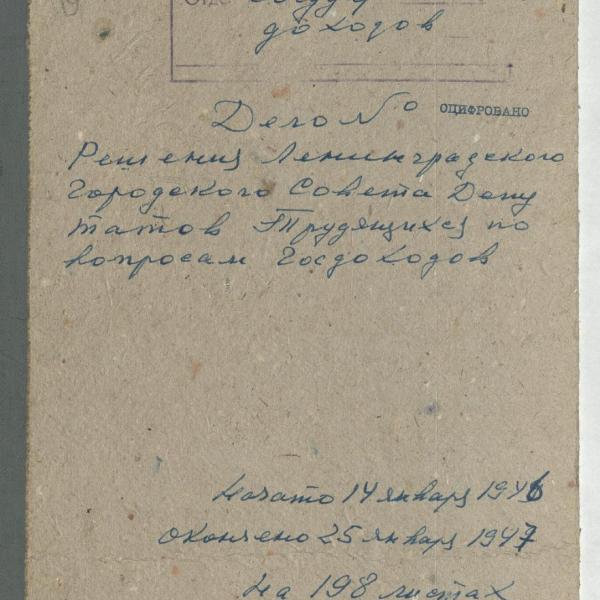 доходов
Дело №
ОЦИФРОВАНО
Решения Ленинградского
Городского Совета Депу
татов Трудящихся по
вопросам Госдоходов
Начато 14 января 1946
окончено 25 января 1947
На 198 листах